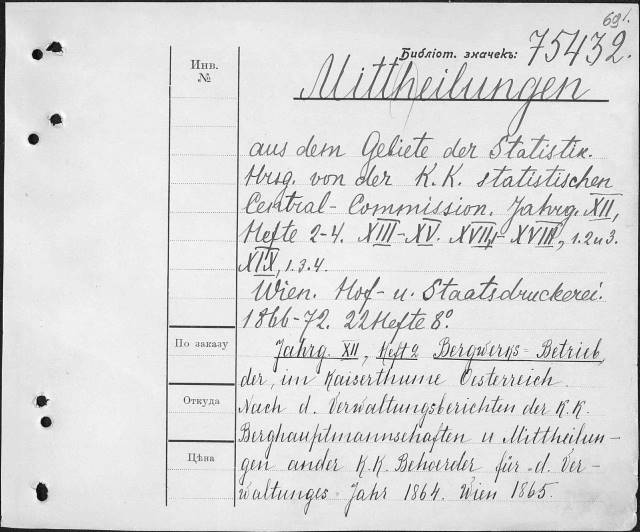 691.
Библіот. значекъ: 75432.
Инв. №
Mittheilungen
aus dem Gebiete der Statistik.
Hrsg. von der K.K. statistischen
Central-Commission. Jahrg. XII,
Hefte 2-4. XIII-XV. XVII,1-XVIII, 1.2 u 3.
XIX, 1.3.4.
Wien. Hof- u. Staatsdruckerei.
1866-72. 22 Hefte 8°.
По заказу
Jahrg. XII, Heft 2 Bergwerks-Betrieb,
der, im Kaiserthume Oesterreich.
Откуда
Nach d. Verwaltungsberichten der K.K.
Berghauptmannschaften u Mittheilun-
Цѣна
gen ander K.K. Behoerder für d. Ver-
waltunges-Jahr 1864. Wien 1865.